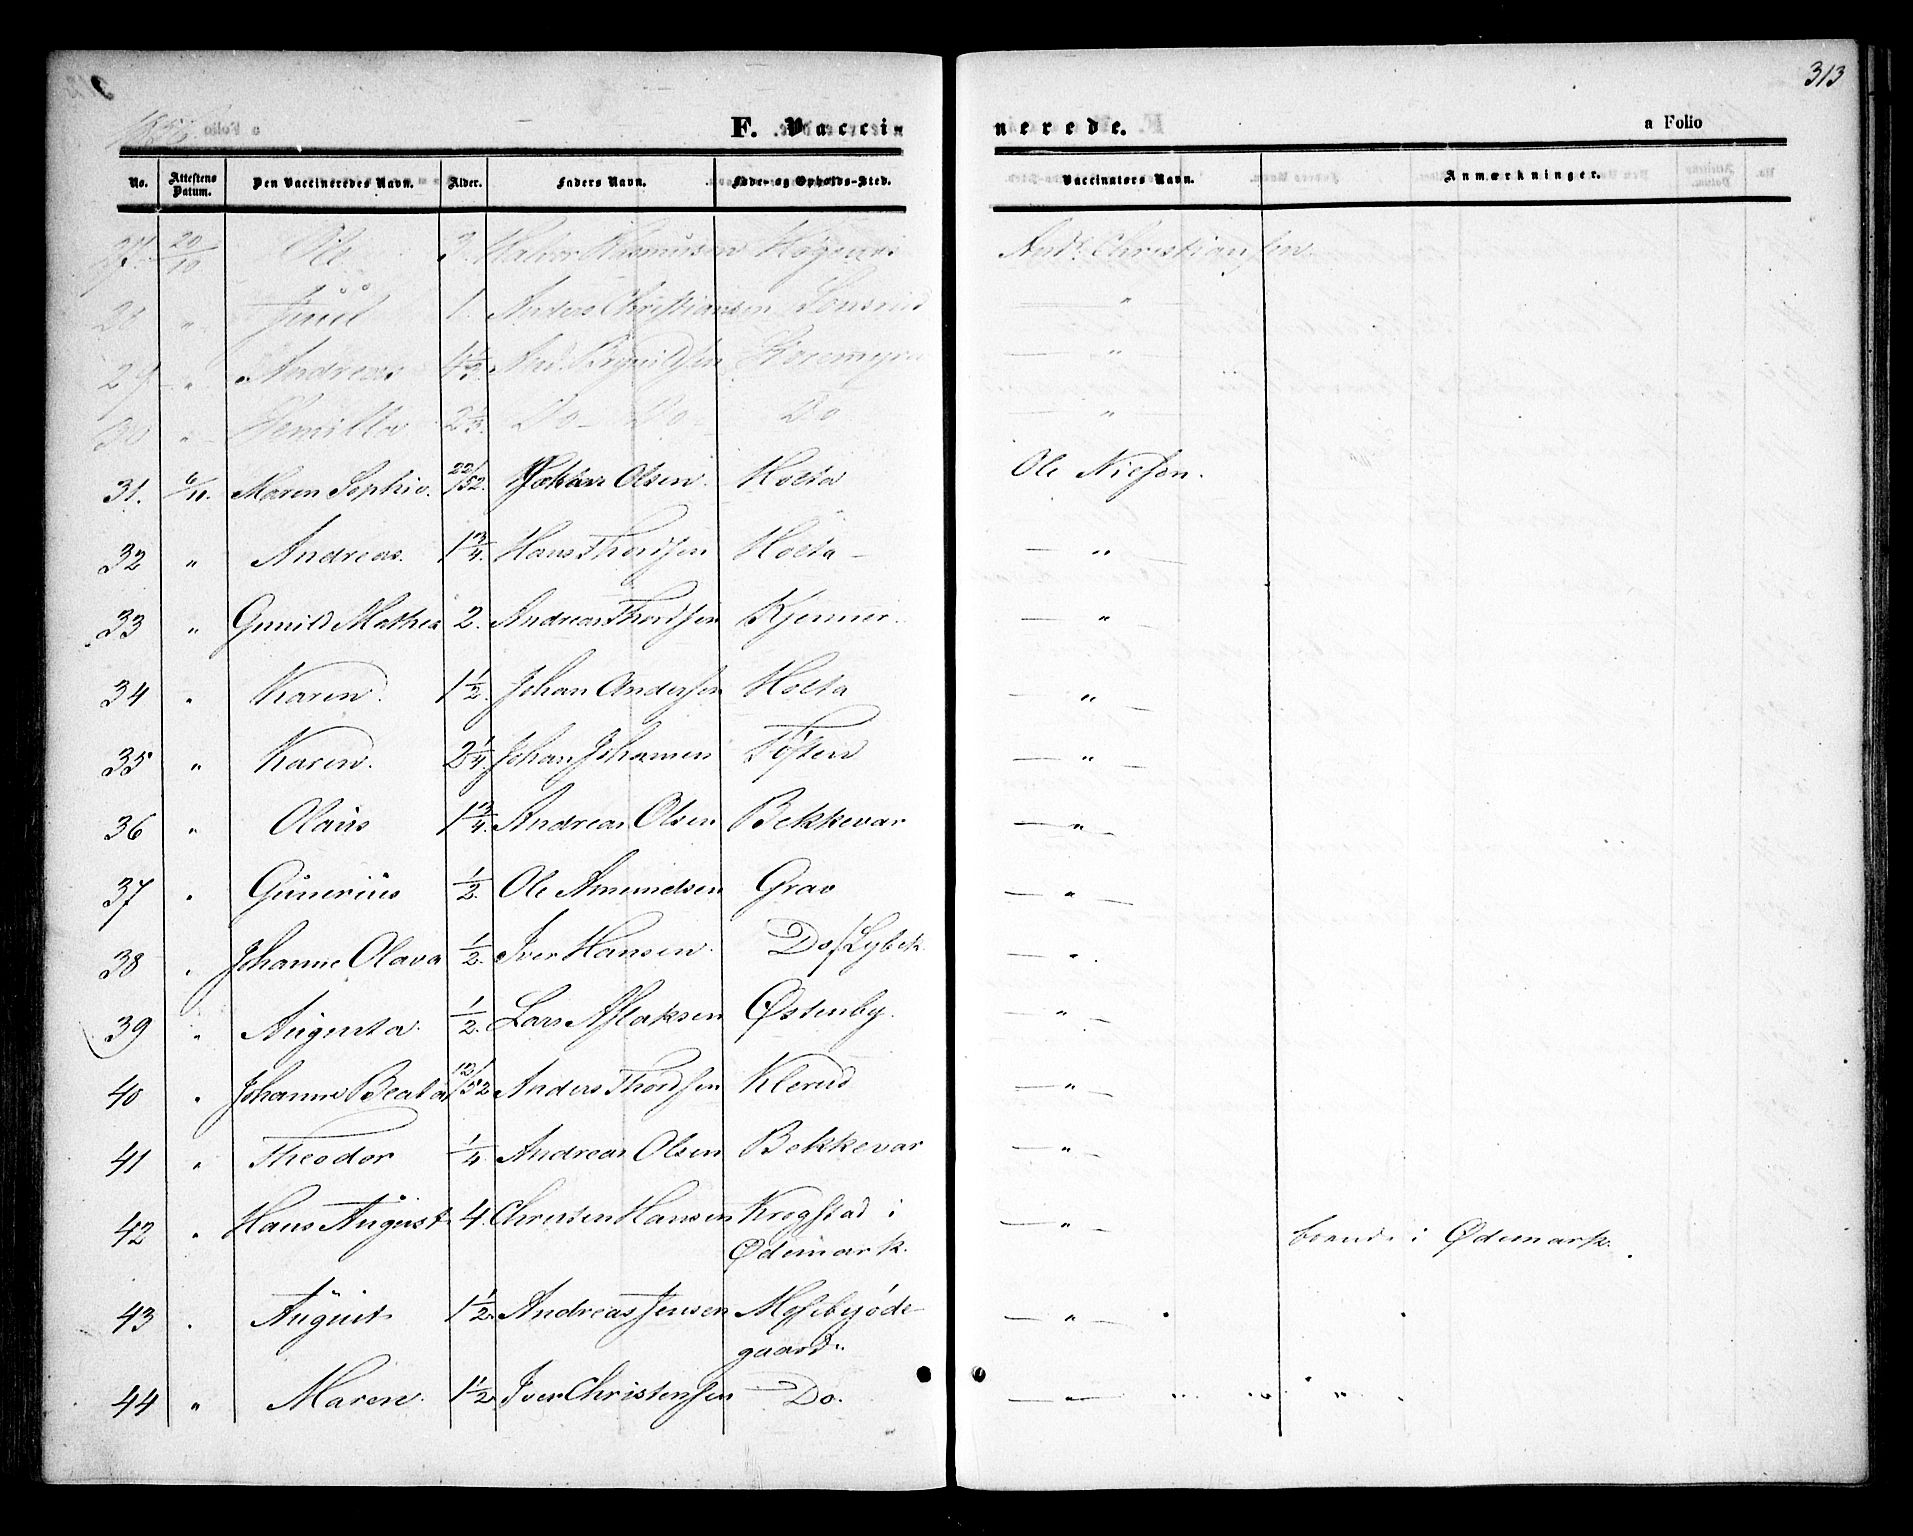 313
F. Vacci-
nerede.
a Folio
No. Attestens Datum. Den Vaccineredes Navn. Alder. Faders Navn. Føde- og Opholds-Sted. Vaccinators Navn. Anmærkninger.
27. 20/10 Ole 3. Halvor Rasmusen And. Christiansen.
28 " Juul 1. Anders Christiansen "
29 " Andreas And. "
30 " 2 Do Do Do "
31. 6/11. Maren Sophie. 22/52. Olsen. Holta Ole Nielsen.
32 " Andreas. 1 3/4. Hans Thordsen Holta "
33 " Gunild Mathea 2. Andreas Thordsen Kjenner. "
34 " Karen. 1 1/2. Johan Andersen Holta "
35 " Karen. 2 1/4. Johan Johansen Toften "
36 " Olaüs 1 3/4. Andreas Olsen Bekkevar "
37 " Güneriüs 1/2 Ole Amundsen Grav "
38 " Johanne Olava 1/2. Iver Hansen. Do/Lybek "
39 " Augusta. 1/2. Lars Aslaksen Østenby. "
40 " Johanne Beata 12/52 Anders Thordsen Klerud "
41 " Theodor 1/4. Andreas Olsen Bekkevar "
42 " Hans August 4. Christen Hansen Krogstad i "
Ødemark. boende i Ødemark.
43 " August 1 1/2. Andreas Jensen Mosebyøde- "
gaard.
44 " Maren. 1 1/2 Iver Christensen Do. " " " "